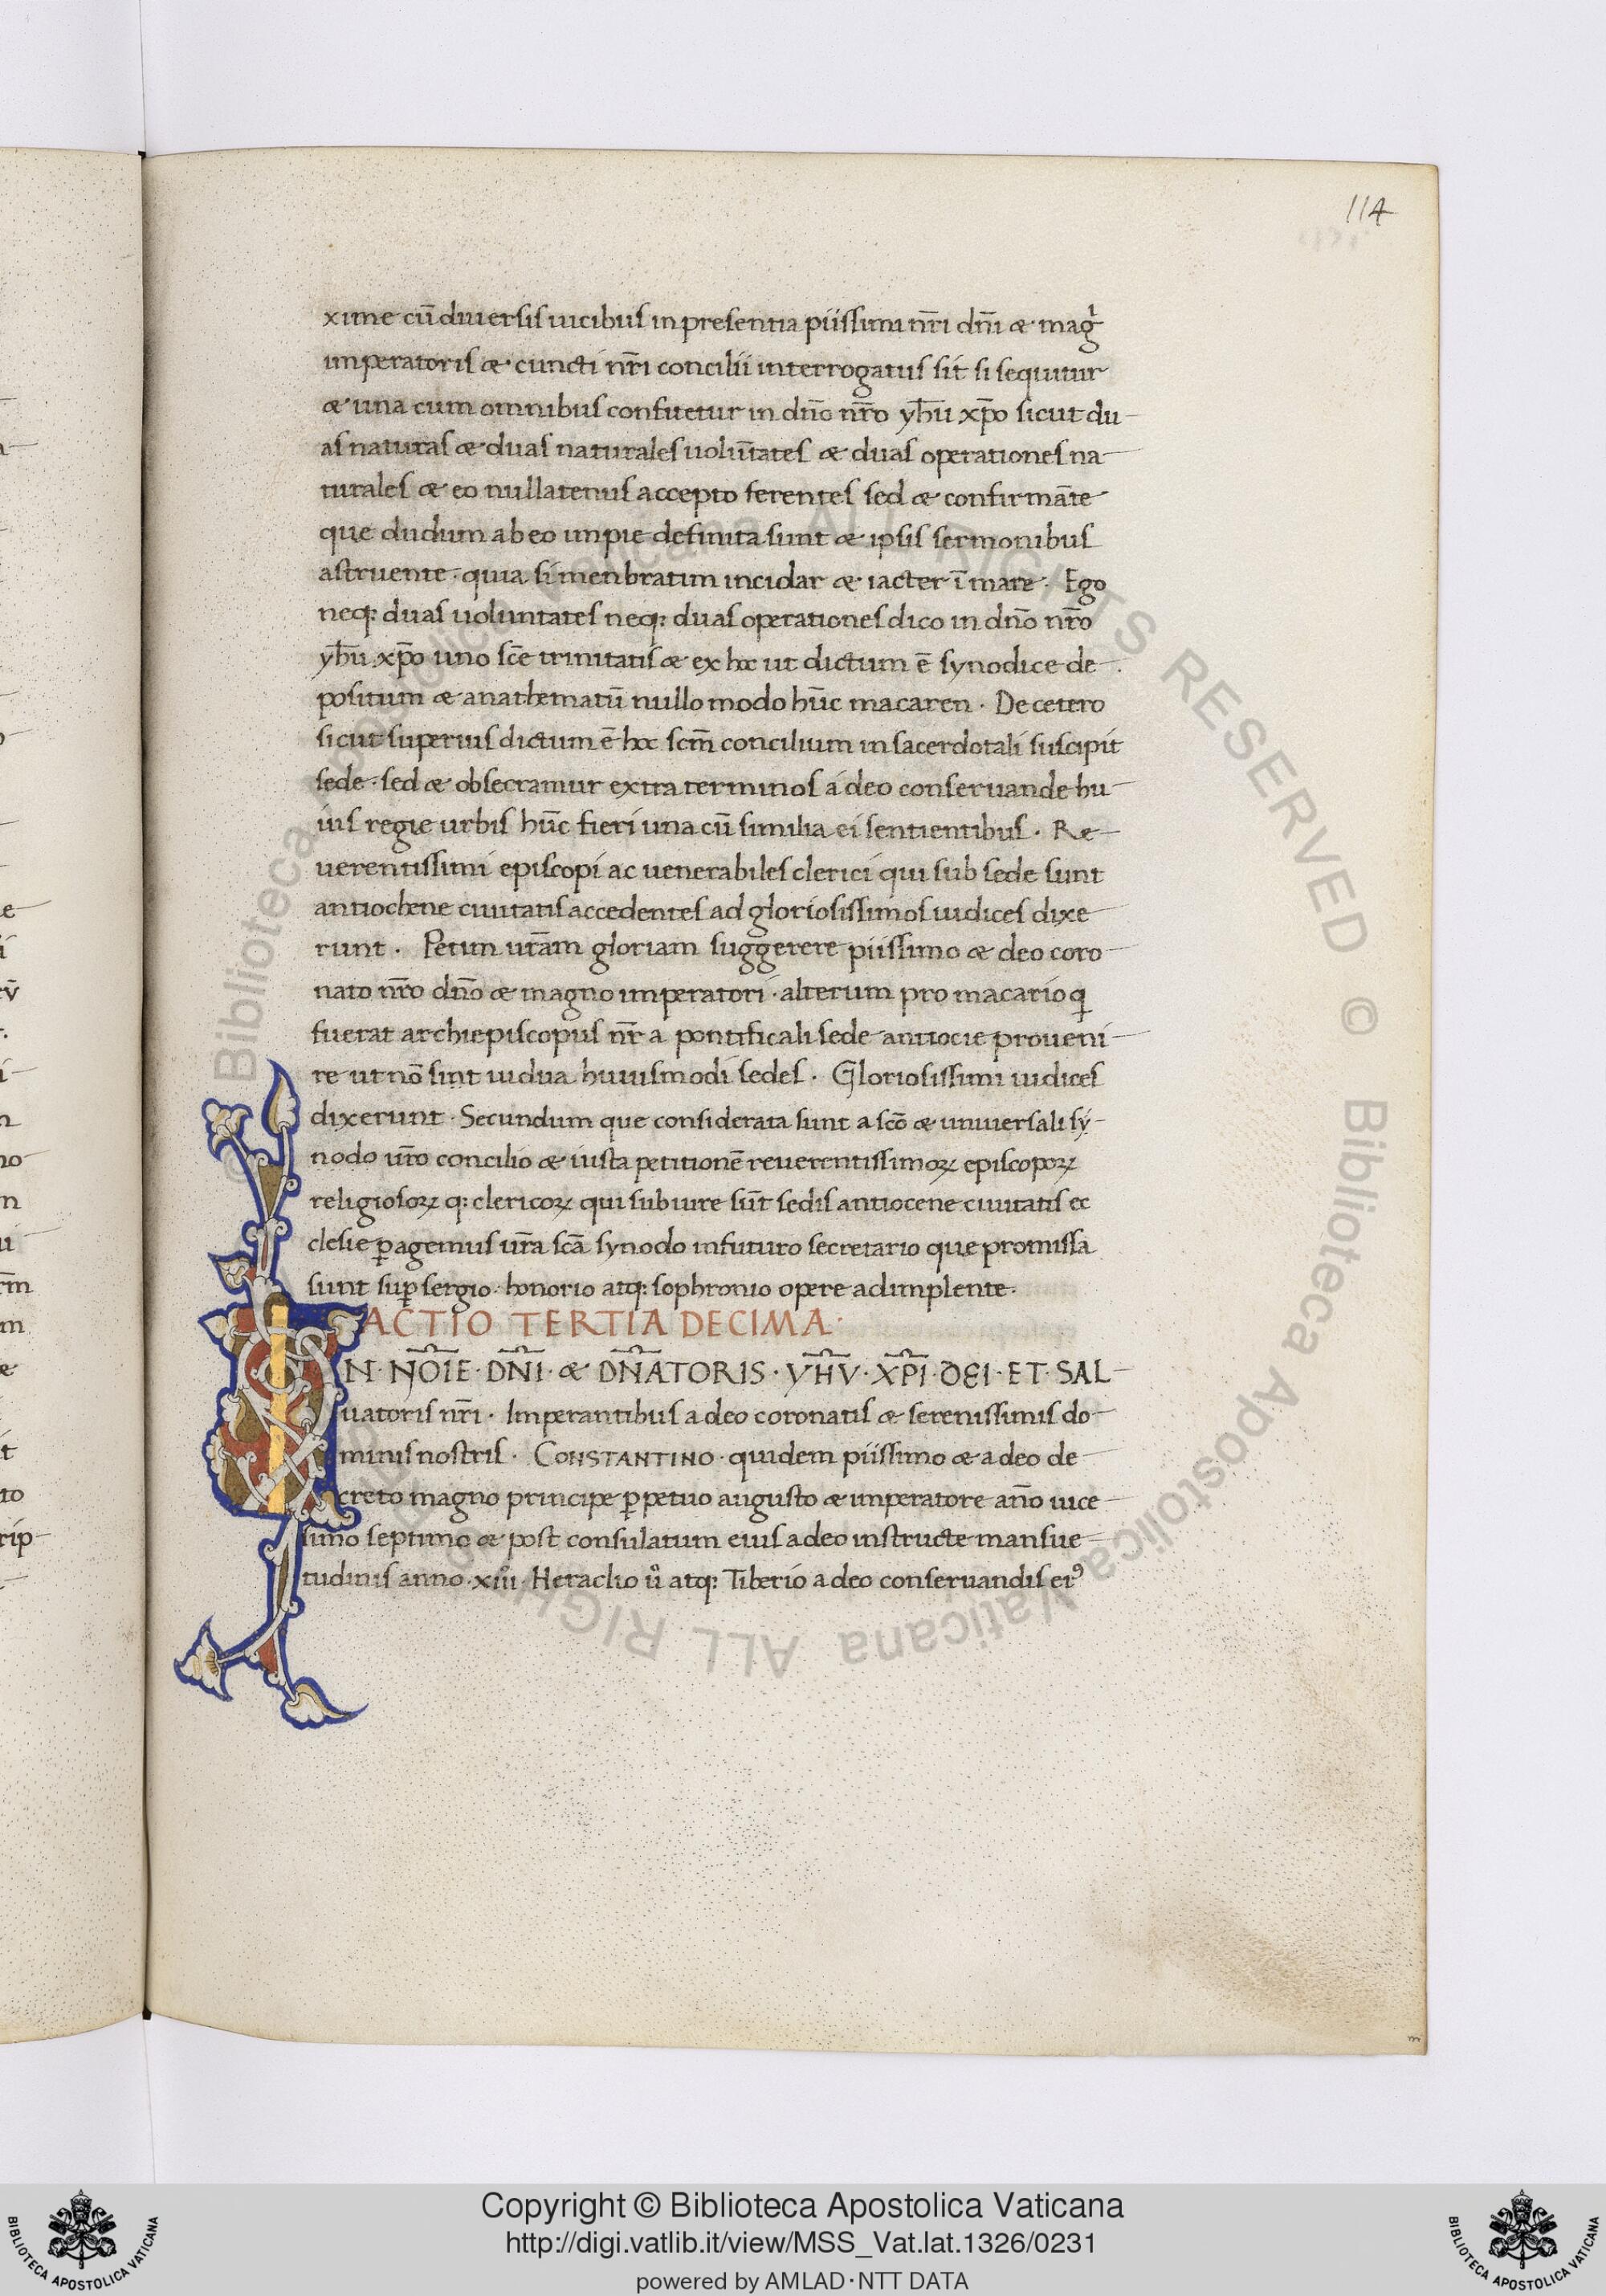 114
xime cū diuersis uicibus in presentia piissimi nr̄i dn̄i æ magͥ
imperatoris æ cuncti nr̄i concilii interrogatus sit si sequitur
æ una cum omnibus confitetur in dn̄o nr̄o yh̄u xp̄o sicut du-
as naturas æ duas naturales uolūtates æ duas operationes na-
turales æ eo nullatenus accepto ferentes sed æ confirmāte
que dudum ab eo impie definita sunt æ ipsis sermonibus
astruente · quia si menbratim incidar æ iacter ī mare · Ego
neq: duas uoluntates neq: duas operationes dico in dn̄o nr̄o
yh̄u xp̄o uno sc̄e trinitatis æ ex hoc ut dictum ē synodice de-
positum æ anathematū nullo modo hūc macaren · De cetero
sicut superius dictum ē hoc scm̄ concilium in sacerdotali suscipit
sede · sed æ obsecramur extra terminos a deo conseruande hu-
ius regie urbis hūc fieri una cū similia ei sentientibus · Re-
uerentissimi episcopi ac uenerabiles clerici qui sub sede sunt
antiochene ciuitatis accedentes ad gloriosissimos iudices dixe-
runt · Petim ur̄am gloriam suggerere piissimo æ deo coro-
nato nr̄o dn̄o æ magno imperatori · alterum pro macario q
fuerat archiepiscopus nr̄ a pontificali sede antiocie proueni-
re ut nō sint uidua huiusmodi sedes · Gloriosissimi iudices
dixerunt · Secundum que considerata sunt a scō æ uniuersali sy-
nodo ur̄o concilio æ iusta petitionē reuerentissimoꝝ episcopoꝝ
religiosoꝝ q: clericoꝝ qui sub iure sūt sedis antiocene ciuitatis ec
clesie ꝑagemus ur̄a scā synodo in futuro secretario que promissa
sunt suꝑ sergio · honorio atq: sophronio opere adimplente ·
ACTIO TERTIA DECIMA ·
IN · NOĪE · DN̄I · æ DN̄ATORIS · YH̄V · XP̄I · DEI · ET · SAL-
uatoris nr̄i · Imperantibus a deo coronatis æ serenissimis do-
minis nostris · CONSTANTINO · quidem piissimo æ a deo de-
creto magno principe ꝑpetuo augusto æ imperatore an̄o uice-
simo septimo æ post consulatum eius a deo instructe mansue-
tudinis anno · xiii · Heraclio u͛ atq: Tiberio a deo conseruandis eiꝰ
© Biblioteca Apostolica Vaticana ALL RIGHTS RESERVED © Biblioteca Apostolica Vaticana ALL RIGHTS RESERVED
BIBLIOTECA APOSTOLICA VATICANA
Copyright © Biblioteca Apostolica Vaticana
http://digi.vatlib.it/view/MSS_Vat.lat.1326/0231
powered by AMLAD·NTT DATA
BIBLIOTECA APOSTOLICA VATICANA